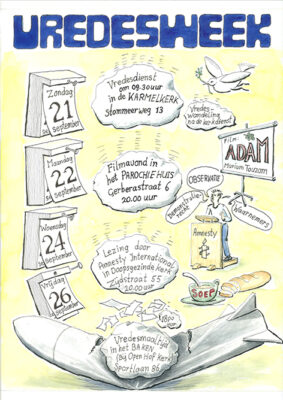 VREDESWEEK
Zondag
21
september
Vredesdienst
om 09.30 uur
in de KARMELKERK
Stommeerweg 13
Vredes
wandeling
na de kerkdienst
Maandag
22
september
Filmavond in
het PAROCHIEHUIS
Gerberastraat 6
20.00 uur
Film:
ADAM
Mariam Touzani
OBSERVATIE
Demonstratie-
recht
Waarnemers
Amnesty
Woensdag
24
september
Lezing door
Amnesty International
in Doopsgezinde Kerk
Zijdstraat 55
20.00 uur
Vrijdag
26
september
SOEP
18.00
Vredesmaaltijd
in het BAKEN
(Bij Open Hof Kerk)
Sportlaan 86